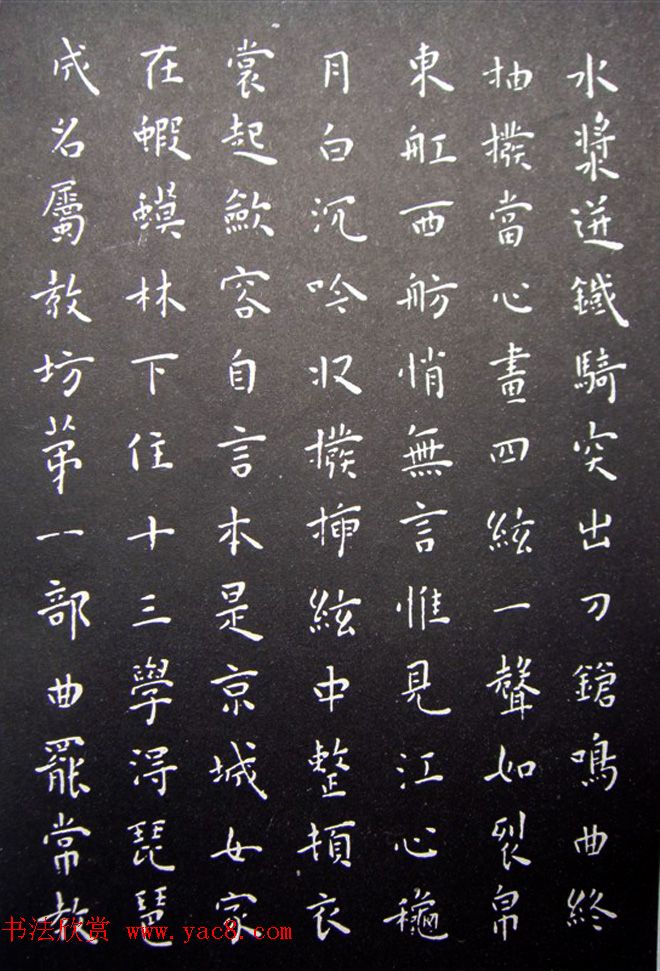 水漿迸鐵騎突出刀鎗鳴曲終
抽撥當心畫四絃一聲如裂帛
東舡西舫悄無言惟見江心穐
月白沉吟收撥揷絃中整頓衣
裳起歛容自言本是京城女家
在蝦蟆林下住十三學得琵琶
成名屬教坊第一部曲罷常教
书法欣赏 www.yac8.com